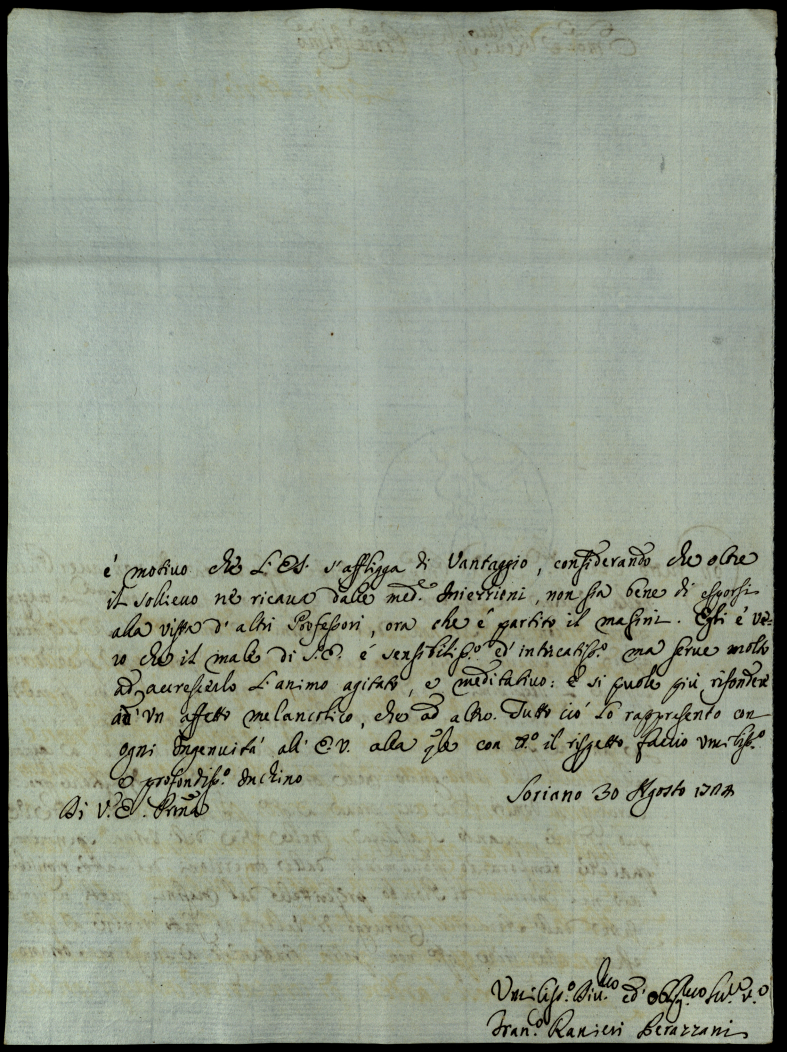 é motivo chè L'E.S. s'affligga di Vantaggio, considerando che oltre
il sollievo nè ricava dalle med.e , non sia bene di esporsi
alla vista d'altri Professori, ora che é partito il Masini. Egli é ve=
ro che il male di S.E. é sensibiliss.o ed' intricatiss.o ma serve molto
ad accrescerlo L'animo agitato, e meditativo: E si puole più rifondere
ad' un affetto melancolico, che ad altro. Tutto ciò Lo rappresento con
ogni Ingenuità all' E.V. alla qle con t.o il rispetto faccio umiliss.o
e profondiss.o Inchino
Di V.E. Prinã Soriano 30 Agosto
Umiliss.o Div.mo ed' obblig.mo v.o
Fran.o Ranieri Perazzani